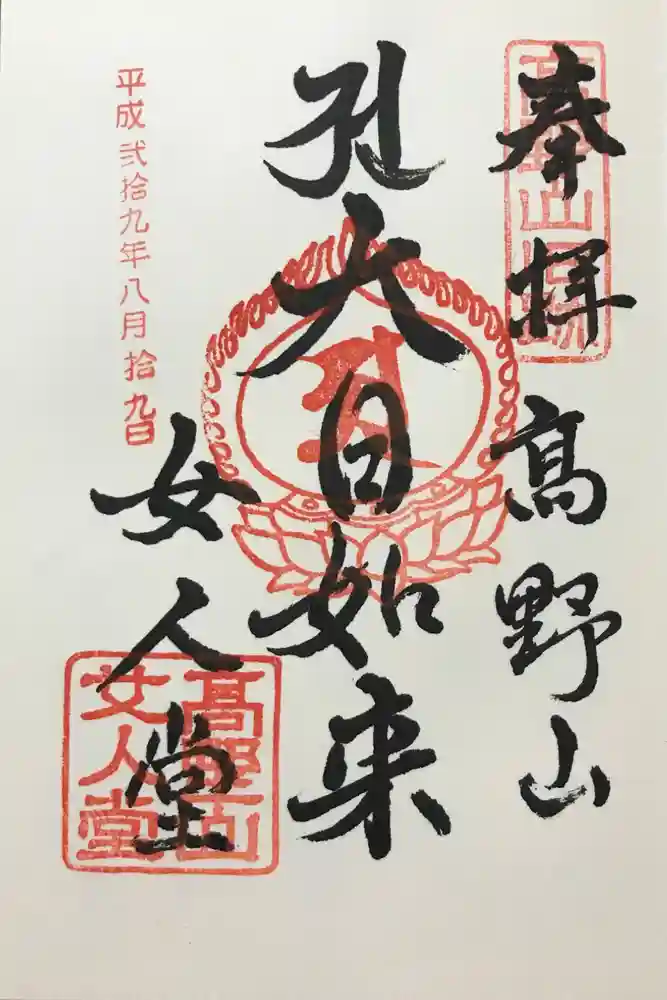 奉拝 高野山
孔大日如来
女人堂
平成弐拾九年八月拾九日
高野山
女人堂